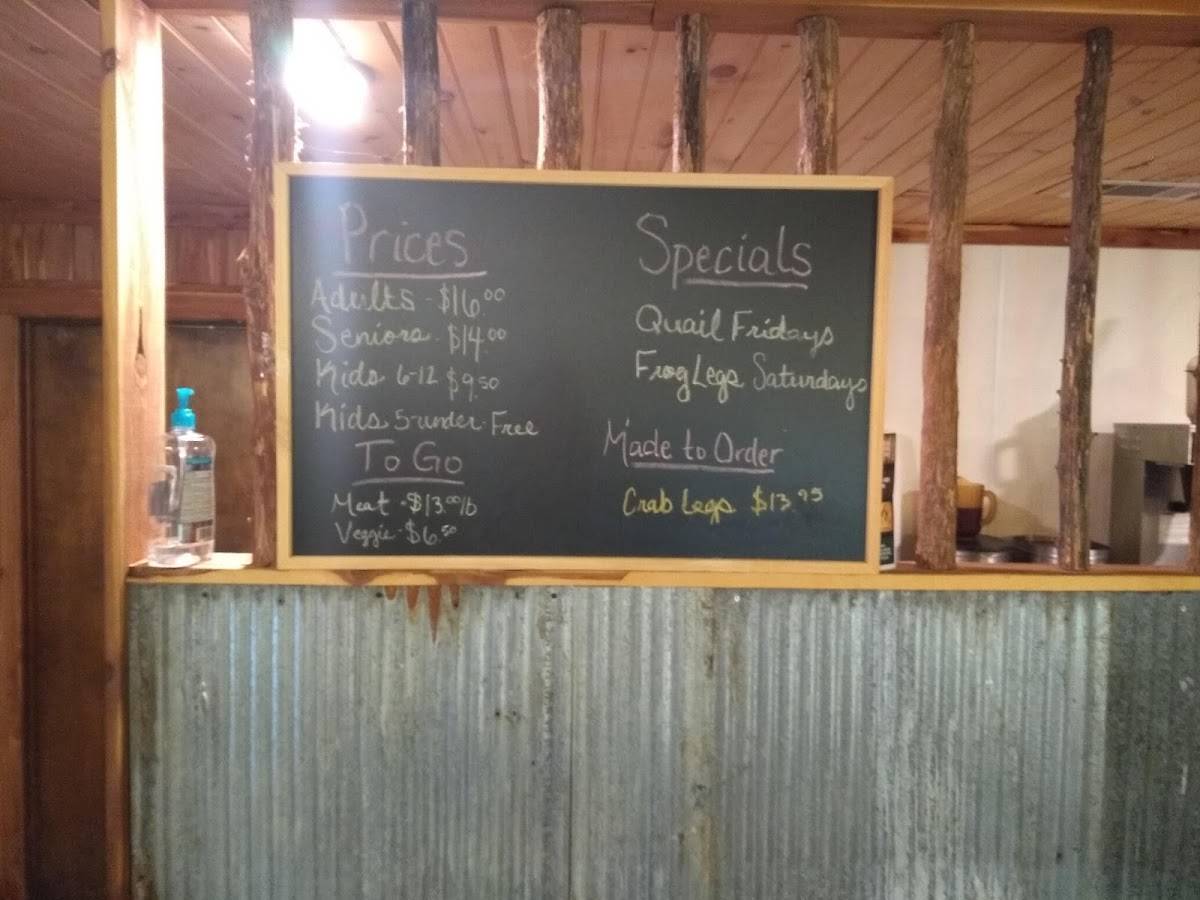 Prices
Adults - $16.00
Seniors - $14.00
Kids 6-12 $9.50
Kids 5-under - Free
To Go
Meat - $13.00/lb
Veggie - $6.50
Specials
Quail Fridays
Frog Legs Saturdays
Made to Order
Crab Legs $13.95